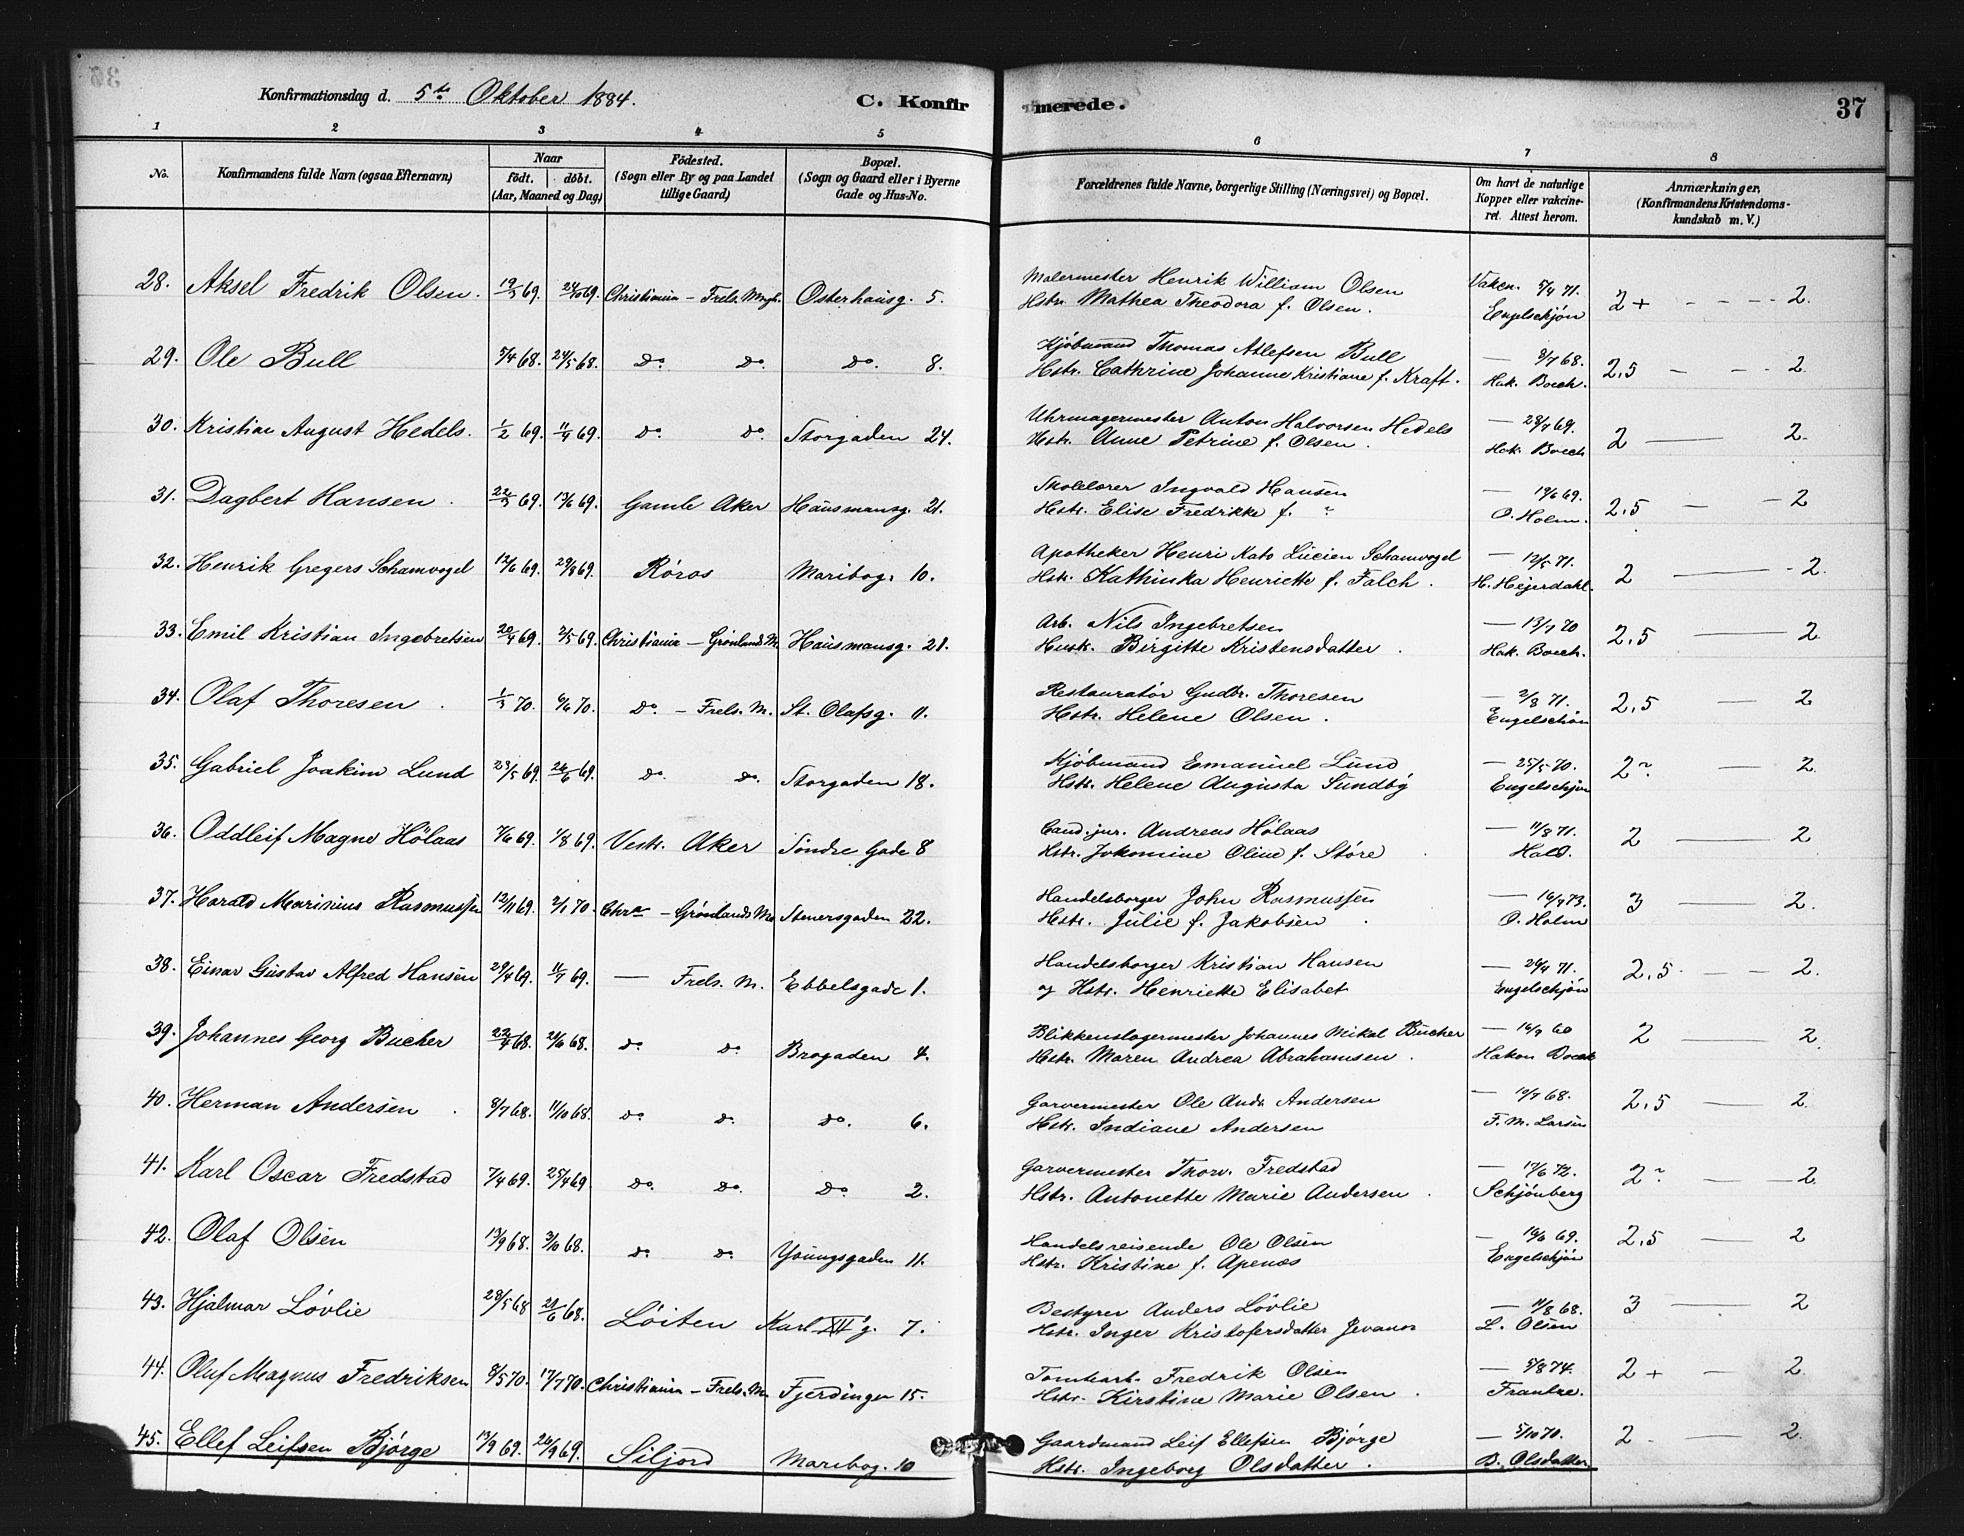 Konfirmationsdag d. 5te Oktober 1884.
C. Konfirmerede.
37
1 2 3 4 5 6 7 8
No.
Konfirmandens fulde Navn (ogsaa Efternavn)
Naar
født. døbt.
(Aar, Maaned og Dag)
Födested.
(Sogn eller By og paa Landet
tillige Gaard)
Bopæl.
(Sogn og Gaard eller i Byerne
Gade og Hus-No.
Forældrenes fulde Navne, borgerlige Stilling (Næringsvei) og Bopæl.
Om havt de naturlige
Kopper eller vakcine-
ret. Attest herom.
Anmærkninger.
(Konfirmandens Kristendoms-
kundskab m. V.)
28. Aksel Fredrik Olsen. 19/5 69. Christiania – Frels. Mgh. Osterhausg. 5. Malermester Henrik William Olsen Vakcn. 5/4 71. 2+ - - - - 2.
Hstr. Mathea Theodora f. Olsen. Engelschjøn
29. Ole Bull 5/4 68. 24/5 68. Do Do. Do. 8. Kjøbmand Thomas Atlefsen Bull — 8/7 68. 2,5 - - - 2.
Hstr. Cathrine Johanne Kristiane f. Kraft. Hak. Boeck.
30. Kristian August Hedels. 1/2 69. 11/4 69. Do. Do. Storgaden 24. Uhrmagermester Anton Halvorsen Hedels — 28/7 69. 2 — 2.
Hstr. Anne Petrine f. Olsen. Hak. Boeck
31. Dagbert Hansen. 22/3 69. 13/6 69. Gamle Aker Hausmansg. 21. Skolelærer Ingvald Hansen — 19/6 69. 2,5 — - 2
Hstr. Elise Fredrikke f. " O. Holm.
32. Henrik Gregers Schamvogel 12/6 69. 29/8 69. Röros Maribog. 10. Apotheker Henri Kato Lucien Schamvogel — 12/5 71. 2 — - 2.
Hstr. Kathinka Henriette f. Falch. H. Hejerdahl.
33. Emil Kristian Ingebretsen 20/4 69. 2/5 69. Christiania – Grönlands M. Hausmansg. 21. Arb. Nils Ingebretsen — 13/7 70 2,5 — 2
Hustr. Birgitte Kristensdatter. Hak. Boeck.
34. Olaf Thoresen. 1/3 70. 6/6 70. Do. – Frels. M. St. Olafsg. 11. Restauratør Gudbr. Thoresen — 2/8 71. 2,5 — 2
Hstr. Helene Olsen. Engelschiøn
35. Gabriel Joakim Lund 23/5 69. 26/6 69. Do. Do. Storgaden 18. Kjøbmand Emanuel Lund — 25/5 70. 2~. — 2.
Hstr. Helene Augusta Sundby Engelschjøn
36. Oddleif Magne Hölaas 7/6 69. 1/8 69. Vestr. Aker Söndre Gade 8 Cand. jur. Andreas Hölaas — 11/8 71. 2 — 2
Hstr. Jokomine Oline f. Støre. Hald.
37. Harald Marinius Rasmussen 12/11 69. 2/1 70. Chra – Grönlands M. Stenersgaden 22. Handelsborger John Rasmussen — 16/9 73. 3 — 2.
Hstr. Julie f. Jakobsen. O. Holm
38. Einar Gustav Alfred Hansen 29/4 69. 11/7 69. — Frels. M. Ebbelsgade 1. Handelsborger Kristian Hansen — 26/4 71. 2,5. — - — 2.
og Hstr. Henriette Elisabet Engelschjøn
39. Johannes Georg Bucher 22/4 68. 21/6 68. Do. Do. Brogaden 4. Blikkenslagermester Johannes Mikal Bucher — 16/9 60 2 — 2.
Hstr. Maren Andrea Abrahamsen. Hakon Boeck
40. Herman Andersen. 8/7 68. 11/10 68. Do. Do. Do. 6. Garvermester Ole Andr. Andersen — 12/9 68. 2,5 — 2.
Hstr. Indiane Andersen F. M. Larsen
41. Karl Oscar Fredstad 7/4 69. 25/4 69 Do. Do. Do. 2. Garvermester Thorv. Fredstad — 17/6 72. 2~ — — 2.
Hstr. Antonette Marie Andersen. Schjönberg
42. Olaf Olsen 13/9 68. 3/10 68. Do. Do. Youngsgaden 11. Handelsreisende Ole Olsen — 16/6 69. 2,5 — 2
Hstr. Kristine f. Apenæs Engelschjøn
43. Hjalmar Lövlie 28/5 68 21/6 68. Löiten Karl XII g. 7. Bestyrer Anders Lövlie — 11/8 68. 3 — 2
Hstr. Inger Kristofersdatter L. Olsen
44. Oluf Magnus Fredriksen 8/5 70. 17/7 70. Christiania – Frels. M. Fjerdingen 15. Tomtearb. Fredrik Olsen — 5/8 74. 2+ — 2.
Hstr. Kirstine Marie Olsen. Frantze.
45. Ellef Leifsen Bjørge 13/9 69. 26/9 69. Siljord Maribog. 10 Gaardmand Leif Ellefsen Bjørge — 5/10 70. 2 - — 2.
Hstr. Ingeborg Olsdatter. B. Olsdatter